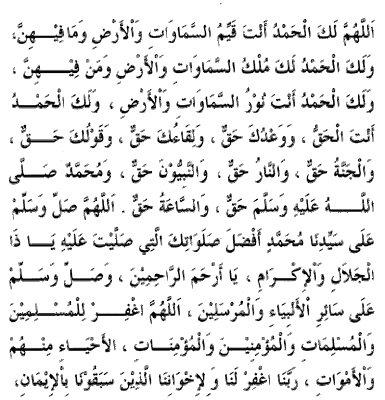 اَللَّهُمَّ لَكَ الْحَمْدُ أَنْتَ قَيِّمُ السَّمَاوَاتِ وَالْأَرْضِ وَمَا فِيْهِنَّ،
وَلَكَ الْحَمْدُ لَكَ مُلْكُ السَّمَاوَاتِ وَالْأَرْضِ وَمَنْ فِيْهِنَّ ،
وَلَكَ الْحَمْدُ أَنْتَ نُوْرُ السَّمَاوَاتِ وَالْأَرْضِ ، وَلَكَ الْحَمْدُ
أَنْتَ الْحَقُّ ، وَوَعْدُكَ حَقٌّ ، وَلِقَاءُكَ حَقٌّ ، وَقَوْلُكَ حَقٌّ ،
وَالْجَنَّةُ حَقٌّ ، وَالنَّارُ حَقٌّ ، وَالنَّبِيُّوْنَ حَقٌّ ، وَمُحَمَّدٌ صَلَّى
اللهُ عَلَيْهِ وَسَلَّمَ حَقٌّ ، وَالسَّاعَةُ حَقٌّ . اَللَّهُمَّ صَلِّ وَسَلِّمْ
عَلَى سَيِّدِنَا مُحَمَّدٍ أَفْضَلَ صَلَوَاتِكَ الَّتِي صَلَّيْتَ عَلَيْهِ يَا ذَا
الْجَلَالِ وَالْإِكْرَامِ ، يَا أَرْحَمَ الرَّاحِمِيْنَ ، وَصَلِّ وَسَلِّمْ
عَلَى سَائِرِ الْأَنْبِيَاءِ وَالْمُرْسَلِيْنَ ، اَللَّهُمَّ اغْفِرْ لِلْمُسْلِمِيْنَ
وَالْمُسْلِمَاتِ وَالْمُؤْمِنِيْنَ وَالْمُؤْمِنَاتِ ، الْأَحْيَاءِ مِنْهُمْ
وَالْأَمْوَاتِ ، رَبَّنَا اغْفِرْ لَنَا وَلِإِخْوَانِنَا الَّذِيْنَ سَبَقُوْنَا بِالْإِيْمَانِ،